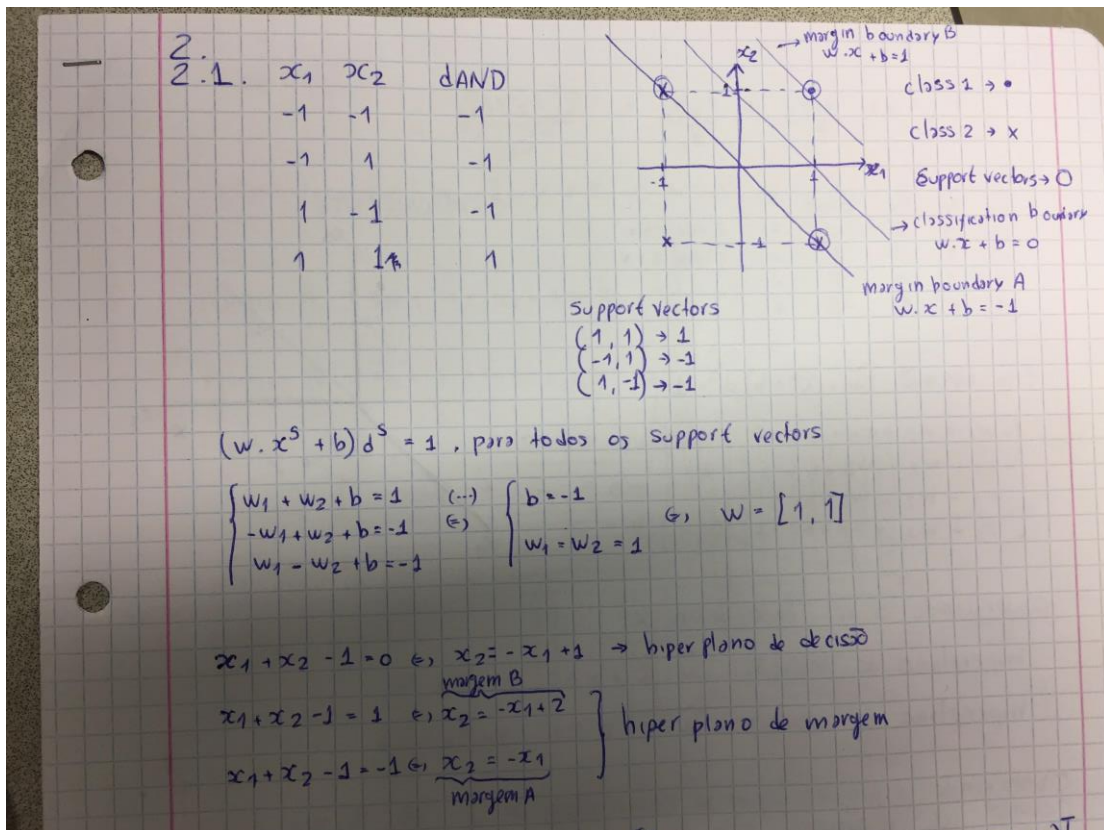 2.
2.1. x₁ x₂ dAND
-1 -1 -1
-1 1 -1
1 -1 -1
1 1 1
x₂
→ margin boundary B
w.x + b = 1
class 1 → •
class 2 → x
Support vectors → O
→ classification boundary
w.x + b = 0
margin boundary A
w.x + b = -1
1
-1
1
x₁
-1
Support vectors
(1, 1) → 1
(-1, 1) → -1
(1, -1) → -1
(w. xˢ + b) dˢ = 1 , para todos os support vectors
w₁ + w₂ + b = 1 (...) b = -1
-w₁ + w₂ + b = -1 ⇔ w₁ = w₂ = 1 ⇔ w = [1, 1]
w₁ - w₂ + b = -1
x₁ + x₂ - 1 = 0 ⇔ x₂ = -x₁ + 1 → hiper plano de decisão
margem B
x₁ + x₂ - 1 = 1 ⇔ x₂ = -x₁ + 2
hiper plano de margem
x₁ + x₂ - 1 = -1 ⇔ x₂ = -x₁
margem A